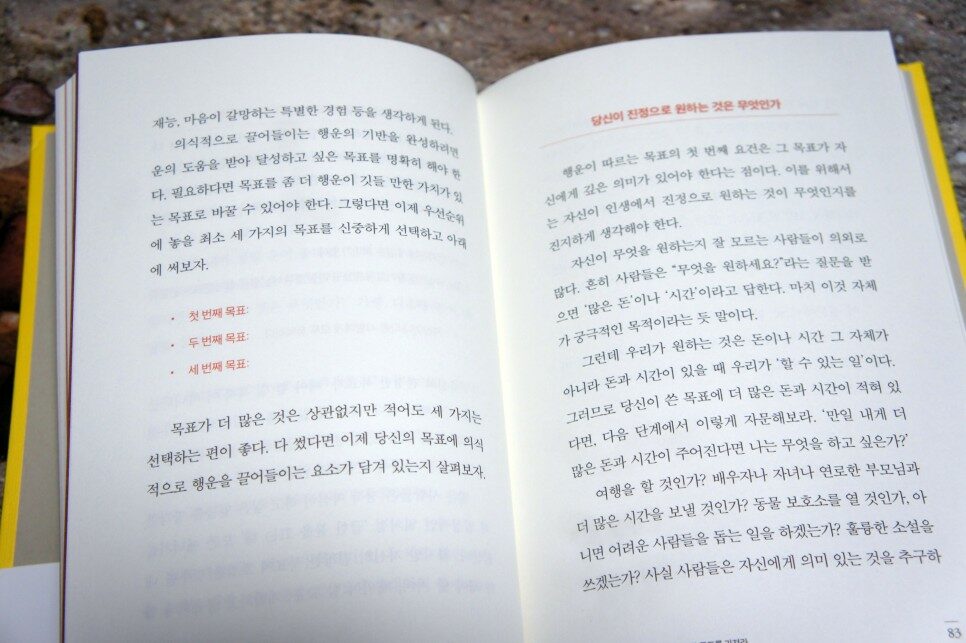 재능, 마음이 갈망하는 특별한 경험 등을 생각하게 된다.
의식적으로 끌어들이는 행운의 기반을 완성하려면
운의 도움을 받아 달성하고 싶은 목표를 명확히 해야 한
다. 필요하다면 목표를 좀 더 행운이 깃들 만한 가치가 있
는 목표로 바꿀 수 있어야 한다. 그렇다면 이제 우선순위
에 놓을 최소 세 가지의 목표를 신중하게 선택하고 아래
에 써보자.
• 첫 번째 목표:
• 두 번째 목표:
• 세 번째 목표:
목표가 더 많은 것은 상관없지만 적어도 세 가지는
선택하는 편이 좋다. 다 썼다면 이제 당신의 목표에 의식
적으로 행운을 끌어들이는 요소가 담겨 있는지 살펴보자.
당신이 진정으로 원하는 것은 무엇인가
행운이 따르는 목표의 첫 번째 요건은 그 목표가 자
신에게 깊은 의미가 있어야 한다는 점이다. 이를 위해서
는 자신이 인생에서 진정으로 원하는 것이 무엇인지를
진지하게 생각해야 한다.
자신이 무엇을 원하는지 잘 모르는 사람들이 의외로
많다. 흔히 사람들은 “무엇을 원하세요?”라는 질문을 받
으면 ‘많은 돈’이나 ‘시간’이라고 답한다. 마치 이것 자체
가 궁극적인 목적이라는 듯 말이다.
그런데 우리가 원하는 것은 돈이나 시간 그 자체가
아니라 돈과 시간이 있을 때 우리가 ‘할 수 있는 일’이다.
그러므로 당신이 쓴 목표에 더 많은 돈과 시간이 적혀 있
다면, 다음 단계에서 이렇게 자문해보라. ‘만일 내게 더
많은 돈과 시간이 주어진다면 나는 무엇을 하고 싶은가?’
여행을 할 것인가? 배우자나 자녀나 연로한 부모님과
더 많은 시간을 보낼 것인가? 동물 보호소를 열 것인가, 아
니면 어려운 사람들을 돕는 일을 하겠는가? 훌륭한 소설을
쓰겠는가? 사실 사람들은 자신에게 의미 있는 것을 추구하
83